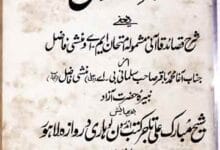 یعنے
شرح قصائد قاآنی مشمولہ امتحان ایم۔اے و منشی فاضل
از
جناب آغا محمد باقر صاحب
نبیرہ حضرت آزاد
شیخ مبارک علی تاجر کتب اندرون لوہاری دروازہ لاہور